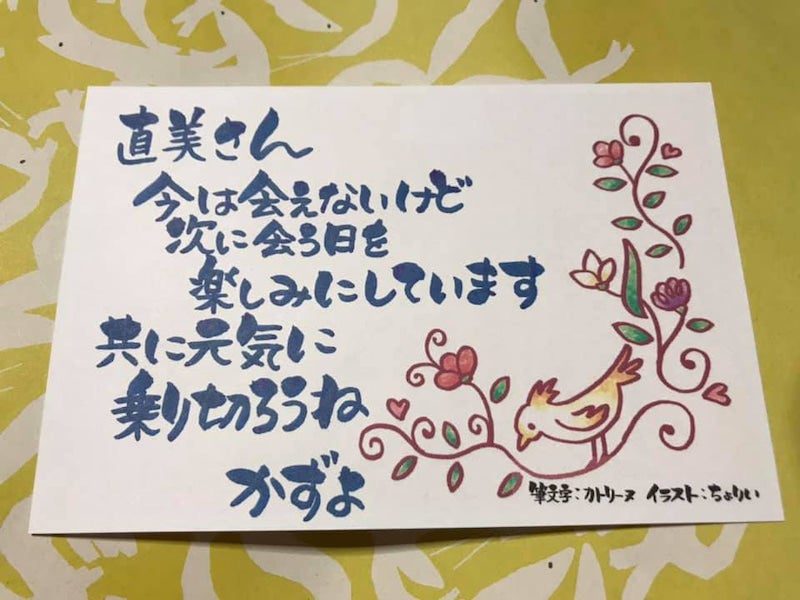 直美さん
今は会えないけど
次に会う日を
楽しみにしています
共に元気に
乗り切ろうね
かずよ
筆文字:カトリーヌ イラスト:ちょりい